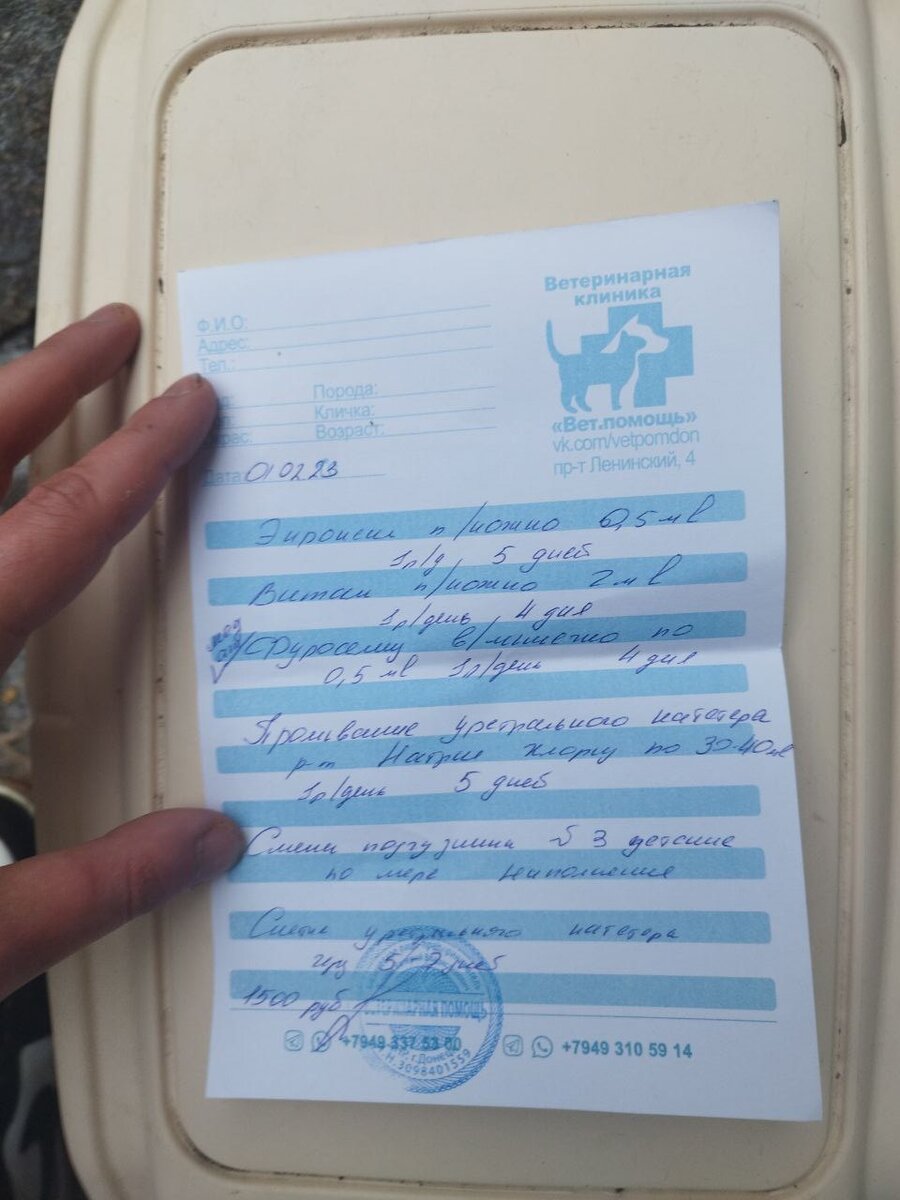 Ветеринарная
клиника
«Вет.помощь»
vk.com/vetpomdon
пр-т Ленинский, 4
Ф.И.О:
Адрес:
Тел.:
Порода:
Кличка:
Возраст:
Дата 01 02 23
п/кожно 0,5 мл
1р/д 5 дней
Витам п/кожно 2 мл
1р/день 4 дня
Фуросемид в/мышечно по
0,5 мл 1р/день 4 дня
Промывание уретрального катетера
р-м Натрия Хлорид по 30-40 мл
1р/день 5 дней
Смена подгузника №3 детские
по мере наполнения
уретрального катетера
5-7 дней
1500 руб
ВЕТЕРИНАРНАЯ ПОМОЩЬ
г. Донецк
3098401559
+7949 337 53 00
+7949 310 59 14